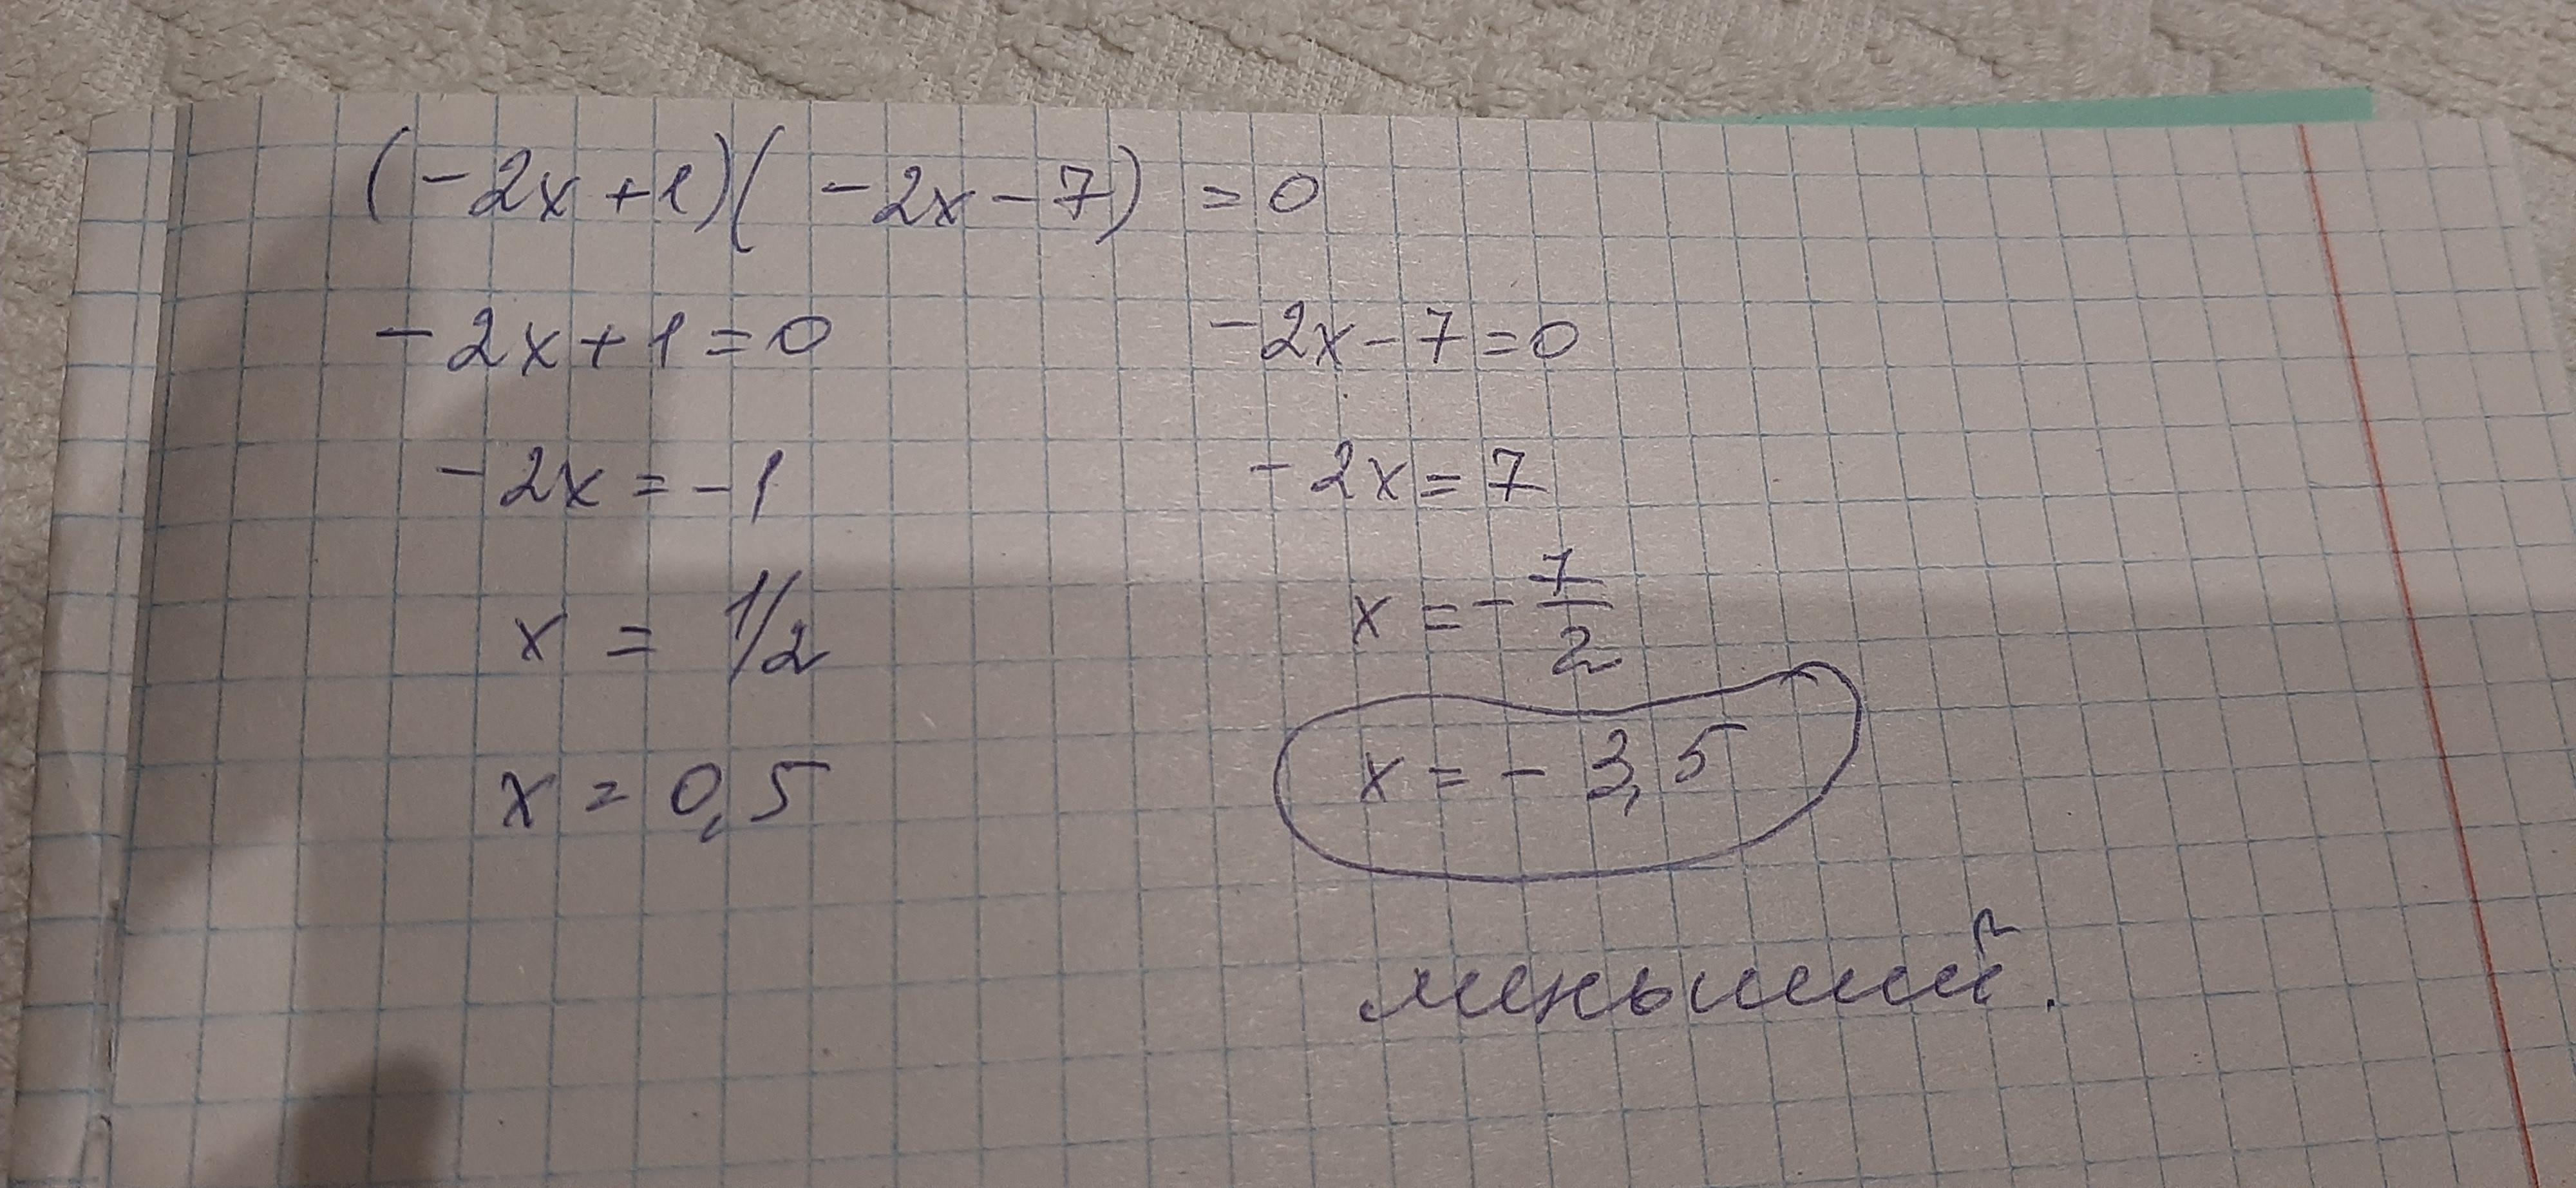 (-2x+1)(-2x-7) = 0
-2x+1=0    -2x-7=0
-2x=-1    -2x=7
x = 1/2    x = -7/2
x = 0,5    x = -3,5
меньший.